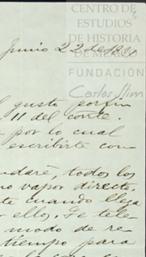 CENTRO DE
ESTUDIOS
DE HISTORIA
DE MÉXICO
Junio 22 de
FUNDACIÓN
Carlos Slim
gusto por fin
11 del corte.
por lo cual
escribirte con
daré, todos los
vapor directo.
te cuando llega
ellos. Se tele
modo de re
tiempo para